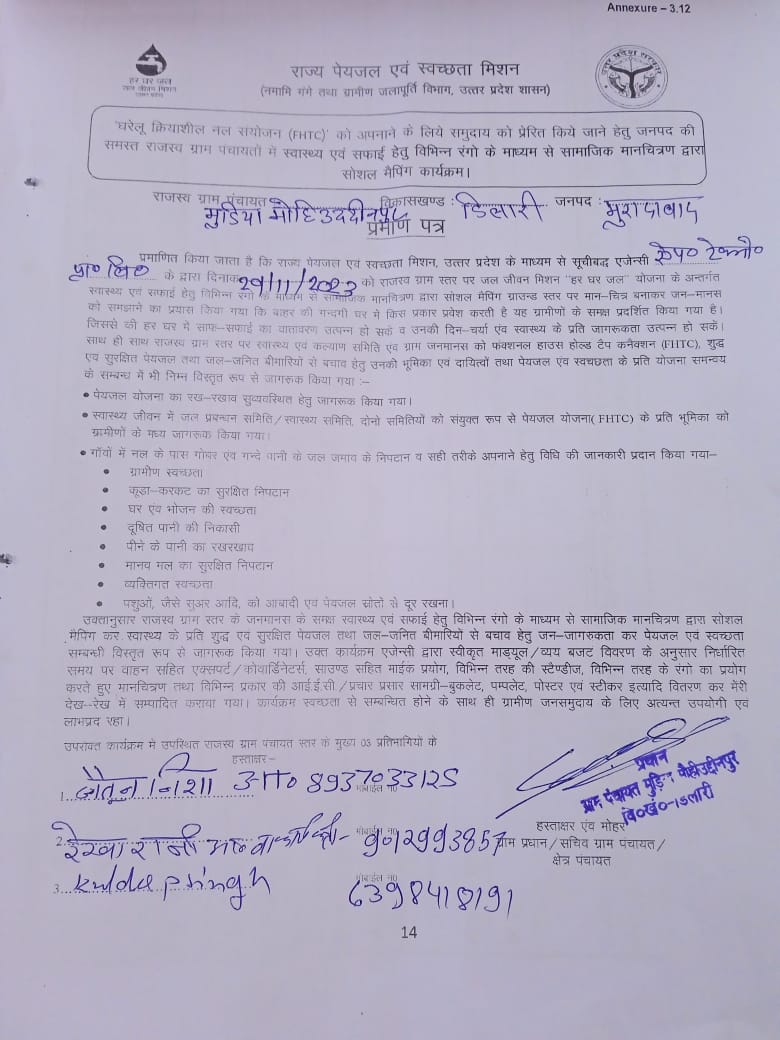 Annexure – 3.12
हर घर जल
जल जीवन मिशन
राज्य पेयजल एवं स्वच्छता मिशन
(नमामि गंगे तथा ग्रामीण जलापूर्ति विभाग, उत्तर प्रदेश शासन)
उत्तर प्रदेश सरकार
'घरेलू क्रियाशील नल संयोजन (FHTC)' को अपनाने के लिये समुदाय को प्रेरित किये जाने हेतु जनपद की
समस्त राजस्व ग्राम पंचायतों में स्वास्थ्य एवं सफाई हेतु विभिन्न रंगो के माध्यम से सामाजिक मानचित्रण द्वारा
सोशल मैपिंग कार्यक्रम।
राजस्व ग्राम पंचायत मुडिया मोहिउददीनपुर विकासखण्ड : डिलारी जनपद : मुरादाबाद
प्रमाण पत्र
प्रमाणित किया जाता है कि राज्य पेयजल एवं स्वच्छता मिशन, उत्तर प्रदेश के माध्यम से सूचीबद्ध एजेन्सी
प्रा० लि० के द्वारा दिनांक 29/11/2023 को राजस्व ग्राम स्तर पर जल जीवन मिशन "हर घर जल" योजना के अन्तर्गत
स्वास्थ्य एवं सफाई हेतु विभिन्न रंगो के माध्यम से सामाजिक मानचित्रण द्वारा सोशल मैपिंग ग्राउन्ड स्तर पर मान–चित्र बनाकर जन–मानस
को समझाने का प्रयास किया गया कि बाहर की गन्दगी घर में किस प्रकार प्रवेश करती है यह ग्रामीणों के समक्ष प्रदर्शित किया गया है।
जिससे की हर घर में साफ–सफाई का वातावरण उत्पन्न हो सके व उनकी दिन–चर्या एंव स्वास्थ्य के प्रति जागरूकता उत्पन्न हो सकें।
साथ ही साथ राजस्व ग्राम स्तर पर स्वास्थ्य एवं कल्याण समिति एंव ग्राम जनमानस को फंक्शनल हाउस होल्ड टैप कनैक्शन (FHTC), शुद्ध
एंव सुरक्षित पेयजल तथा जल–जनित बीमारियों से बचाव हेतु उनकी भूमिका एवं दायित्वों तथा पेयजल एंव स्वच्छता के प्रति योजना समन्वय
के सम्बन्ध में भी निम्न विस्तृत रूप से जागरूक किया गया :–
• पेयजल योजना का रख–रखाव सुव्यवस्थित हेतु जागरूक किया गया।
• स्वास्थ्य जीवन में जल प्रबन्धन समिति/स्वास्थ्य समिति, दोनो समितियों को संयुक्त रूप से पेयजल योजना( FHTC) के प्रति भूमिका को
ग्रामीणों के मध्य जागरूक किया गया।
• गाँवों में नल के पास गोबर एंव गन्दे पानी के जल जमाव के निपटान व सही तरीके अपनाने हेतु विधि की जानकारी प्रदान किया गया–
• ग्रामीण स्वच्छता
• कूड़ा–करकट का सुरक्षित निपटान
• घर एंव भोजन की स्वच्छता
• दूषित पानी की निकासी
• पीने के पानी का रखरखाव
• मानव मल का सुरक्षित निपटान
• व्यक्तिगत स्वच्छता
• पशुओं, जैसे सुअर आदि, को आबादी एंव पेयजल स्रोतो से दूर रखना।
उक्तानुसार राजस्व ग्राम स्तर के जनमानस के समक्ष स्वास्थ्य एवं सफाई हेतु विभिन्न रंगो के माध्यम से सामाजिक मानचित्रण द्वारा सोशल
मैपिंग कर स्वास्थ्य के प्रति शुद्ध एवं सुरक्षित पेयजल तथा जल–जनित बीमारियों से बचाव हेतु जन–जागरुकता कर पेयजल एंव स्वच्छता
सम्बन्धी विस्तृत रूप से जागरूक किया गया। उक्त कार्यक्रम एजेन्सी द्वारा स्वीकृत माड्यूल/व्यय बजट विवरण के अनुसार निर्धारित
समय पर वाहन सहित एक्सपर्ट/कोवार्डिनेटर्स, साउण्ड सहित माईक प्रयोग, विभिन्न तरह की स्टैण्डीज, विभिन्न तरह के रंगों का प्रयोग
करते हुए मानचित्रण तथा विभिन्न प्रकार की आई.ई.सी./प्रचार प्रसार सामग्री–बुकलेट, पम्पलेट, पोस्टर एवं स्टीकर इत्यादि वितरण कर मेरी
देख–रेख में सम्पादित कराया गया। कार्यक्रम स्वच्छता से सम्बन्धित होने के साथ ही ग्रामीण जनसमुदाय के लिए अत्यन्त उपयोगी एवं
लाभप्रद रहा।
उपरोक्त कार्यक्रम में उपस्थित राजस्व ग्राम पंचायत स्तर के मुख्य 03 प्रतिभागियों के
हस्ताक्षर–
1. जैतून निशा मोबाईल नं० 8937033125
प्रधान
ग्राम पंचायत मुडिया मोहीउद्दीनपुर
वि०खं०-डिलारी
हस्ताक्षर एंव मोहर
2. रेखा रानी मोबाईल नं० 9012993857
ग्राम प्रधान/सचिव ग्राम पंचायत/
क्षेत्र पंचायत
3. kuldeep singh मोबाईल नं० 6398418191
14